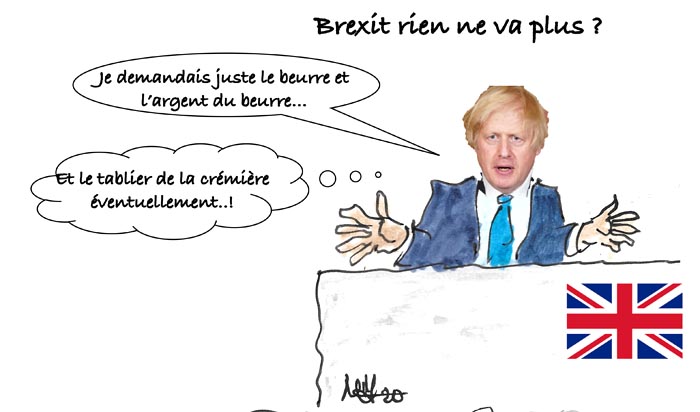 Brexit rien ne va plus ?
Je demandais juste le beurre et
l'argent du beurre...
Et le tablier de la crémière
éventuellement..!